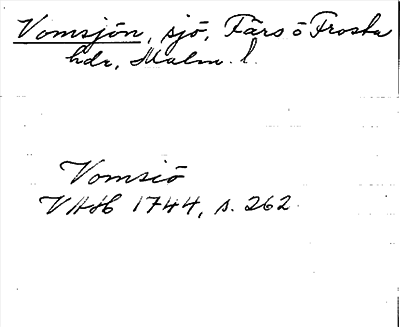 Vomsjön, sjö, Färs o Frosta
hdr, Malm. l.
Vomsiö
VAH 1744, s. 262